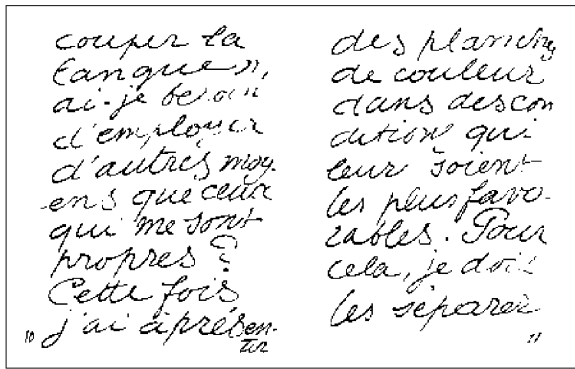 couper la
langue »,
ai-je besoin
d'employer
d'autres moy-
ens que ceux
qui me sont
propres ?
Cette fois
j'ai à présen-
ter
10
des planches
de couleur
dans des con
ditions qui
leur soient
les plus favo-
rables. Pour
cela, je dois
les séparer
11